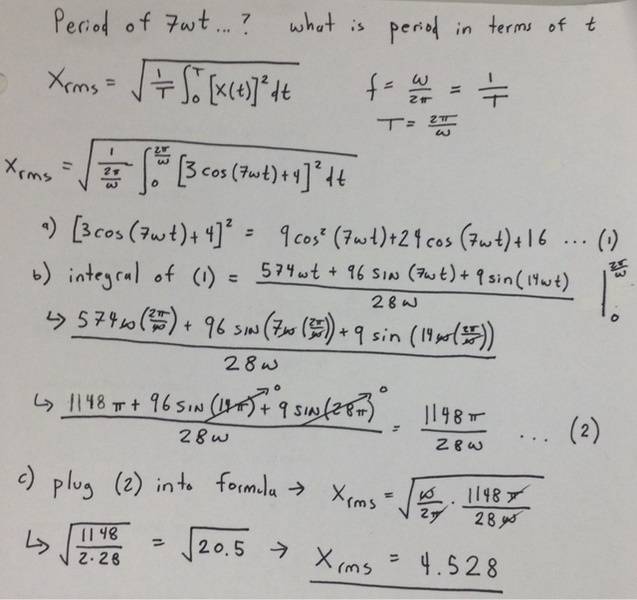 Period of 7wt...? what is period in terms of t
Xrms = √(1/T ∫₀ᵀ [x(t)]² dt) f = ω/2π = 1/T
T = 2π/ω
Xrms = √(1/(2π/ω) ∫₀^(2π/ω) [3 cos(7ωt)+4]² dt)
a) [3cos(7ωt)+4]² = 9cos²(7ωt)+24cos(7ωt)+16 ... (1)
b) integral of (1) = (574ωt + 96 sin(7ωt) + 9 sin(14ωt))/28ω |₀^(2π/ω)
↳ (574ω(2π/ω) + 96 sin(7ω(2π/ω)) + 9 sin(14ω(2π/ω)))/28ω
↳ (1148π + 96 sin(14π)→0 + 9 sin(28π)→0)/28ω = 1148π/28ω ... (2)
c) plug (2) into formula → Xrms = √(ω/2π · 1148π/28ω)
↳ √(1148/2·28) = √20.5 → Xrms = 4.528